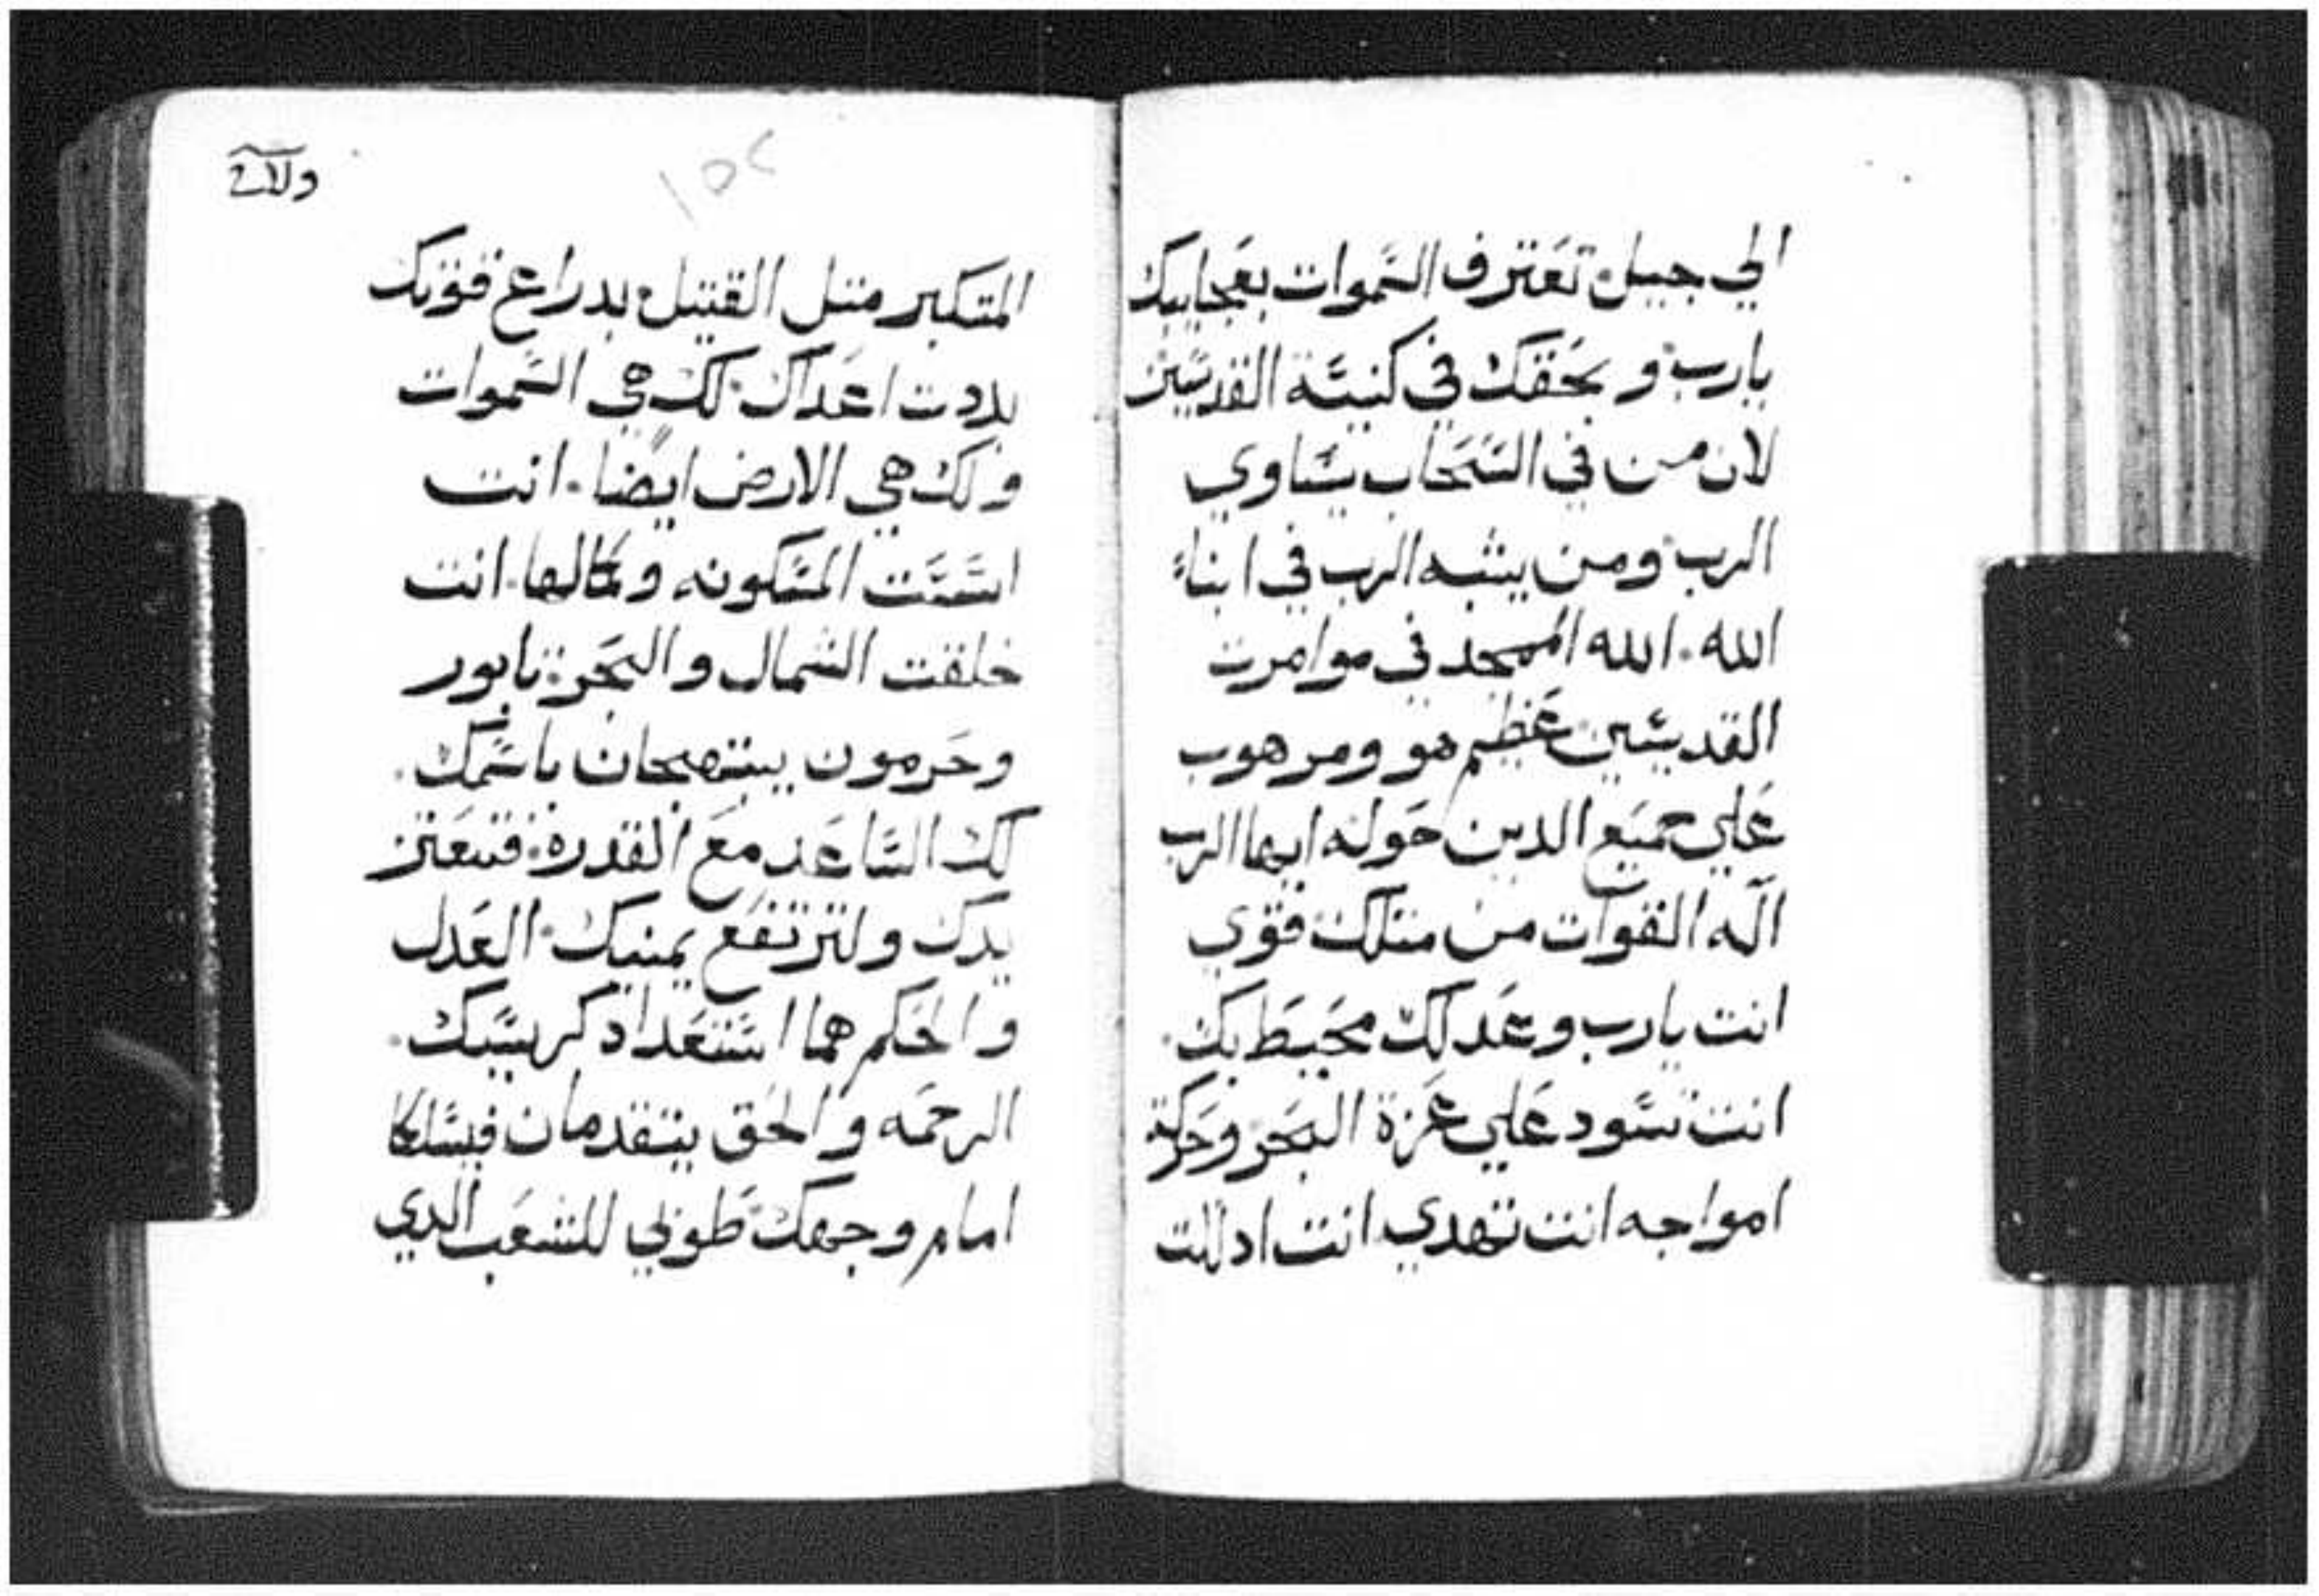 الي جيل تعترف السموات بعجايبك
يارب و بحقك في كنيسة القديسين
لان من في السحاب يساوي
الرب ومن يشبه الرب في ابناء
الله الله الممجد في موامرت
القديسين عظيم هو ومرهوب
علي جميع الدين حوله ايها الرب
اله القوات من متلك قوي
انت يارب وعدلك محيط بك
انت تسود علي عزة البحر وحركة
امواجه انت تهدي انت ادللت
١٥٢
المتكبر متل القتيل بدراع قوتك
بددت اعداك لك هي السموات
ولك هي الارض ايضا انت
اسست المسكونه وكمالها انت
خلقت الشمال والبحر تابور
وحرمون يبتهجان باسمك
لك الساعد مع القدرة فتعتز
يدك ولترتفع يمينك العدل
والحكم هما استعداد كرسيك
الرحمه والحق يتقدمان فيسلكا
امام وجهك طوبي للشعب الدي